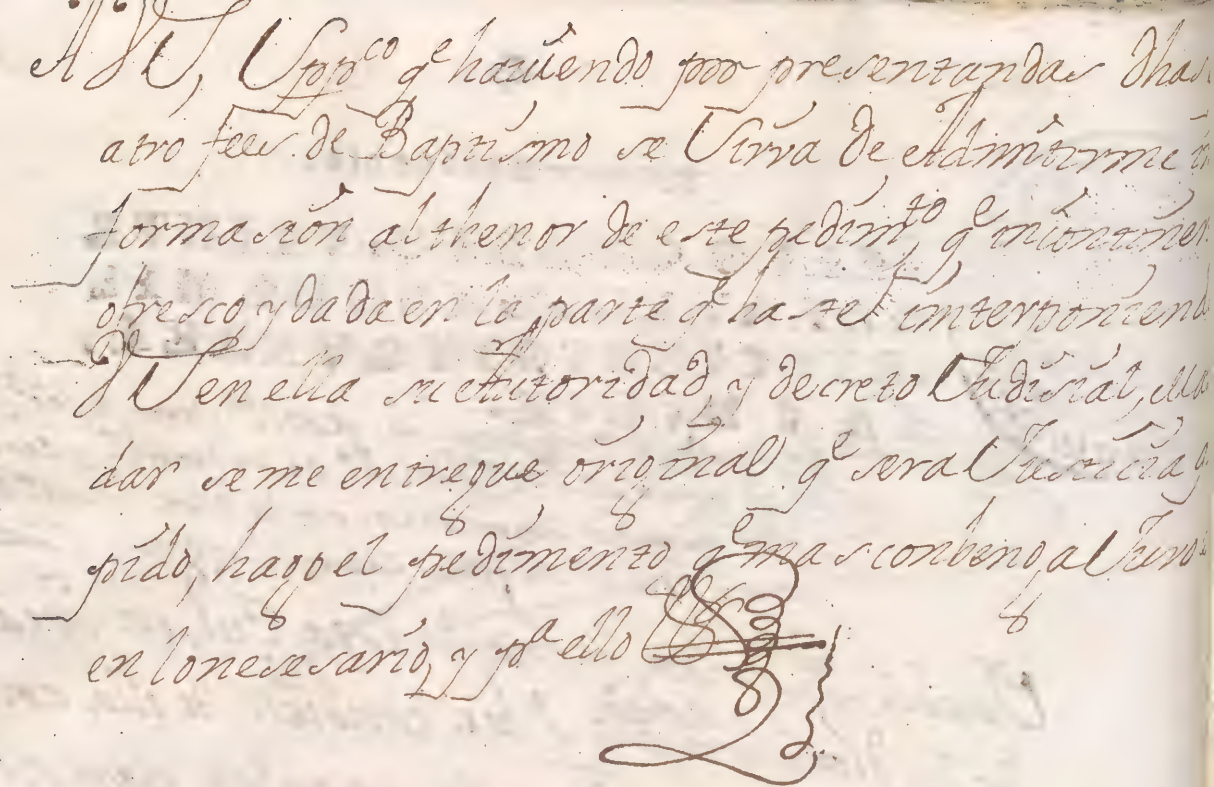 A VS, Suppco qe haviendo por presentandas dhas
atro fees de Baptismo se Sirva de Admitirme in
formasión al thenor de este pedimto, qe incontinen
ofresco, y dada en la parte qe baste interponiendo
VS en ella su Autoridad, y decreto Judisial, Ma
dar se me entregue original qe sera Justicia q
pido, hago el pedimento qe mas conbenga Juro
en lo nesesario, y pa ello